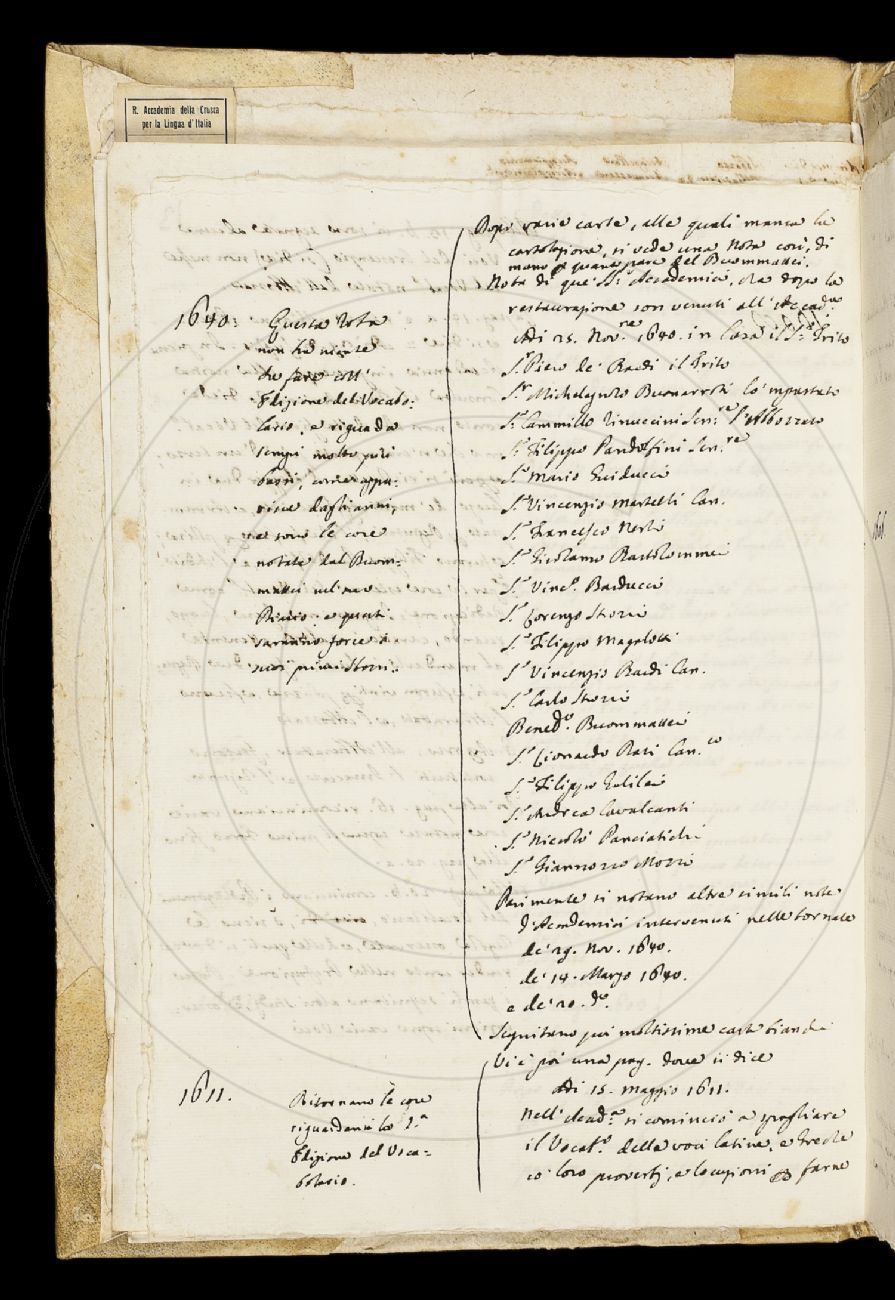 R. Accademia della Crusca
per la Lingua d'Italia
1640:
Questa Nota
non ha niente
che fare coll'
Edizione del Vocabo-
lario, e riguarda
tempi molto più
bassi, come appa-
risce dagli anni,
e sono le cose
notate dal Buom-
mattei nel suo
Diario; e questi
saranno forse i
suoi primi
Dopo varie carte, alle quali manca la
cartolazione, si vede una Nota così, di
mano p quanto pare del Buommattei.
Nota di que' SS.ri Accademici, che dopo la
restaurazione son venuti all'Accad.a
Adi 25. Nov.re 1640. in Casa il S.r Trito
S.r Piero de' Bardi il Trito
S.r Michelagnolo Buonarroti lo 'mpastato
S.r Cammillo Rinuccini Sen.re l'Abbozzato
S.r Filippo Pandolfini Sen.re
S.r Mario Guiducci
S.r Vincenzio Martelli Can.
S.r Francesco Nerli
S.r Girolamo Bartolommei
S.r Vinc.o Barducci
S.r Lorenzo Strozzi
S.r Filippo Magalotti
S.r Vincenzio Bardi Can.
S.r Carlo Strozzi
Bened.o Buommattei
S.r Lionardo Dati Can.co
S.r Filippo Galilei
S.r Andrea Cavalcanti
S.r Niccolò Panciatichi
S.r Giannozzo
Parimente si notano altre simili note
d'Accademici intervenuti nelle tornate
de' 29. Nov. 1640.
de' 14. Marzo 1640.
e de' 20. d.o
Seguitano poi moltissime carte bianche
1611.
Ritornano le cose
riguardanti la 1.a
Edizione del Voca-
bolario.
Vi è poi una pag. dove si dice
Adi 15. Maggio 1611.
Nell'Accad.a si cominciò a spogliare
il Vocab.o delle voci latine, e Greche
co' loro proverbj, e locuzioni p farne